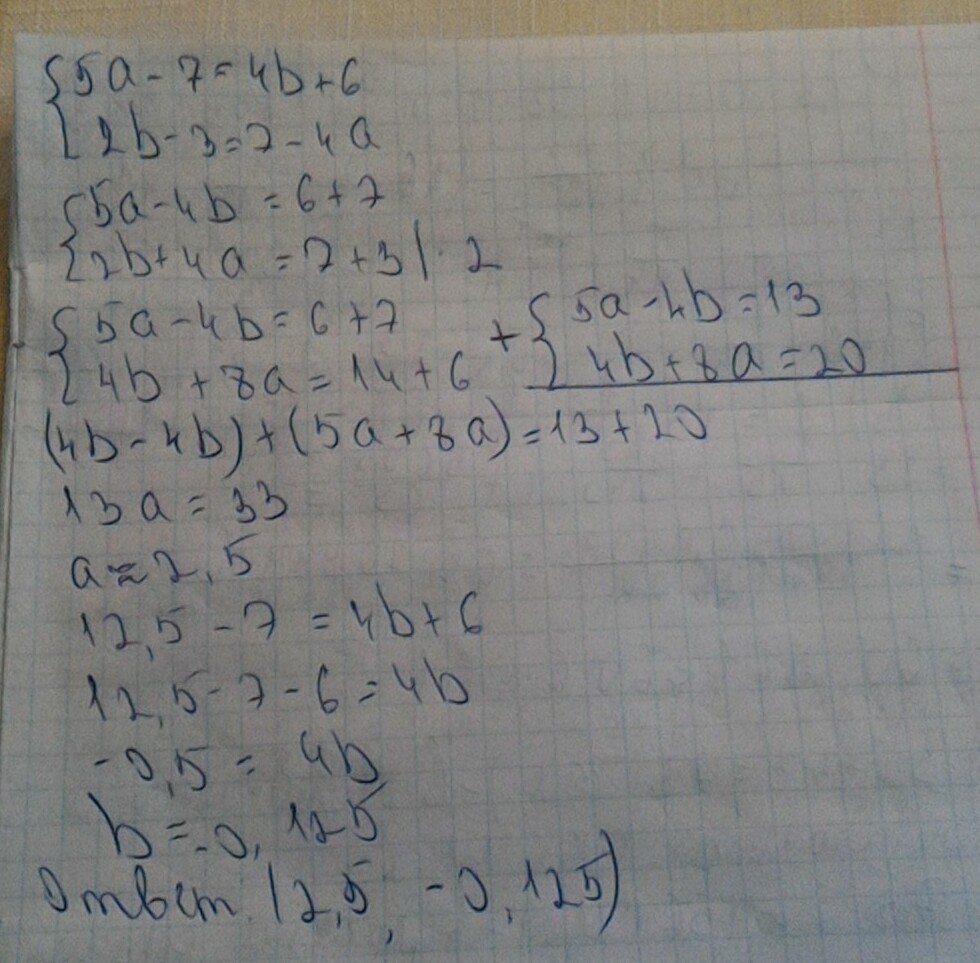 {5a - 7 = 4b + 6
{2b - 3 = 7 - 4a
{5a - 4b = 6 + 7
{2b + 4a = 7 + 3 | · 2
{5a - 4b = 6 + 7
{4b + 8a = 14 + 6
+ {5a - 4b = 13
{4b + 8a = 20
(4b - 4b) + (5a + 8a) = 13 + 20
13a = 33
a ≈ 2,5
12,5 - 7 = 4b + 6
12,5 - 7 - 6 = 4b
-0,5 = 4b
b = -0,125
Ответ: (2,5, -0,125)